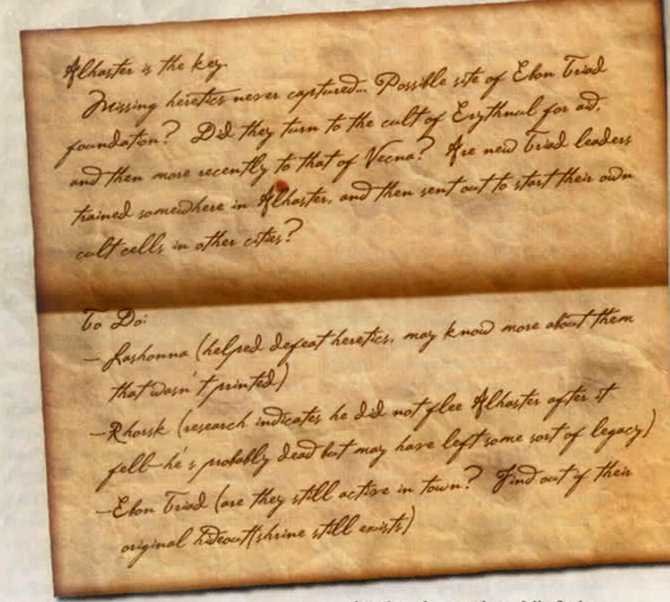 Alhaster is the key.
Missing heretics never captured... Possible site of Ebon Triad
foundation? Did they turn to the cult of Erythnul for aid,
and then more recently to that of Vecna? Are new Triad leaders
trained somewhere in Alhaster, and then sent out to start their own
cult cells in other cities?
To Do:
—Lashonna (helped defeat heretics, may know more about them
that wasn't printed)
—Rhorsk (research indicates he did not flee Alhaster after it
fell—he's probably dead but may have left some sort of legacy)
—Ebon Triad (are they still active in town? Find out if their
original hideout/shrine still exists)